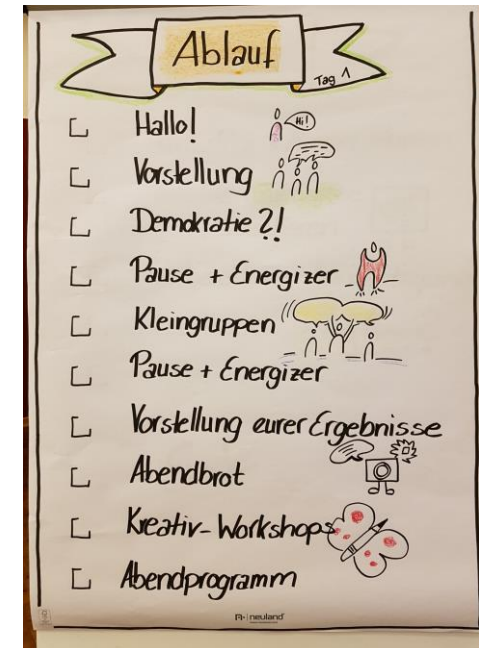 Ablauf
Tag 1
Hallo!
Hi!
Vorstellung
Demokratie?!
Pause + Energizer
Kleingruppen
Pause + Energizer
Vorstellung eurer Ergebnisse
Abendbrot
Kreativ-Workshops
Abendprogramm
neuland